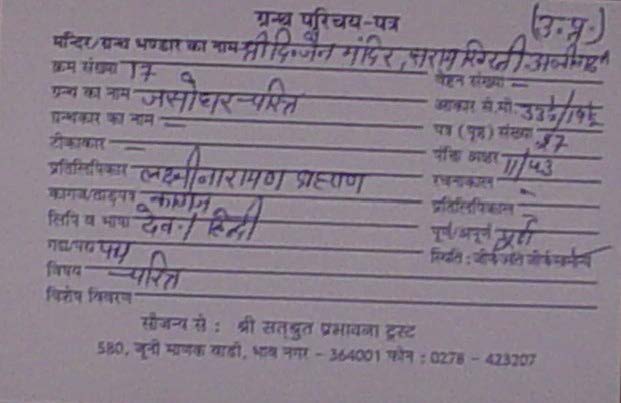 ग्रन्थ परिचय-पत्र (उ.प्र.)
मन्दिर/ग्रन्थ भण्डार का नाम श्री दि. जैन मंदिर, सराय खिरनी-अलीगढ़
क्रम संख्या 17 वेष्टन संख्या —
ग्रन्थ का नाम जसोधर-चरित्र आकार से.मी.
ग्रन्थकार का नाम — पत्र (पृष्ठ) संख्या 87
टीकाकार — पंक्ति अक्षर 11/43
प्रतिलिपिकार लक्ष्मीनारायण ब्राह्मण रचनाकाल -
कागज/ताड़पत्र कागज प्रतिलिपिकाल -
लिपि व भाषा देव./हिन्दी पूर्ण/अपूर्ण पूर्ण
गद्य/पद्य पद्य स्थिति : जीर्ण/अति जीर्ण/सामान्य
विषय चरित्र
विशेष विवरण
सौजन्य से : श्री सत्श्रुत प्रभावना ट्रस्ट
580, जूनी माणक वाडी, भाव नगर - 364001 फोन : 0278 - 423207